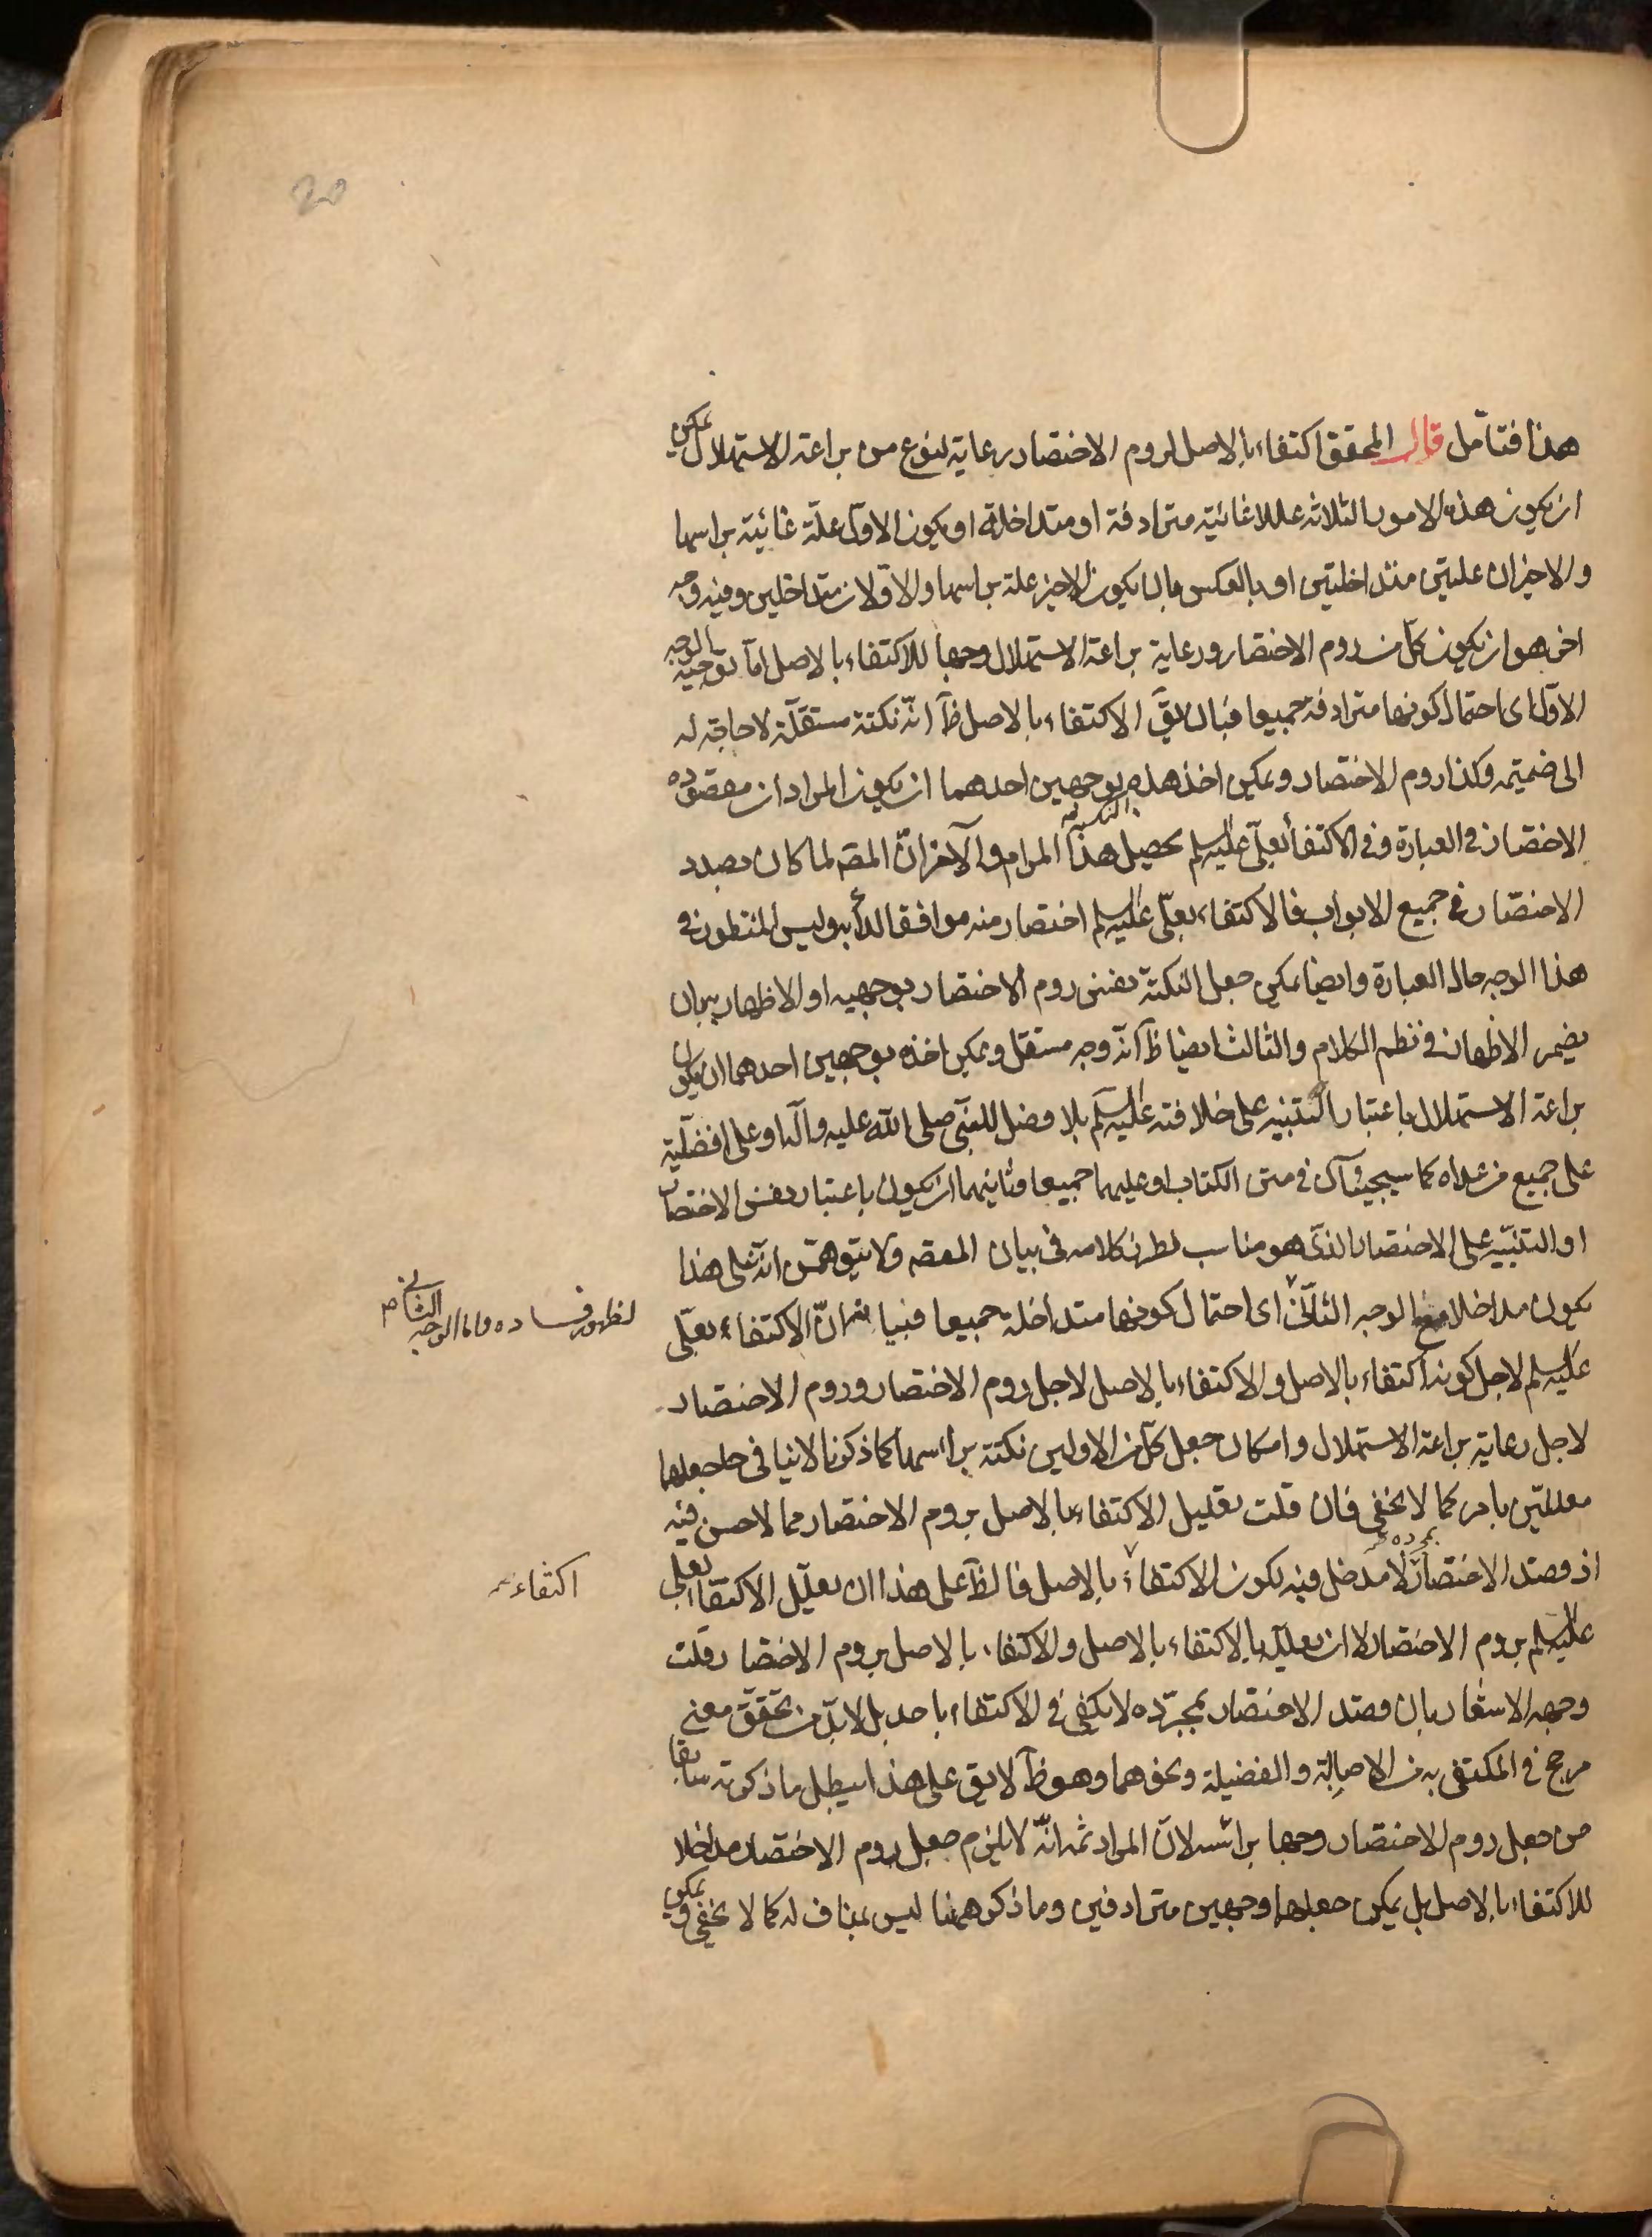 20
هذا فتأمل قال المحقق اكتفاء بالاصل لروم الاختصار رعاية لنوع من براعة الاستهلال يمكن
ان يكون هذه الامور الثلاثة عللا غائية مترادفة او متداخلة او يكون الاول علة غائية براسها
والاخيران علتين متداخلتين او بالعكس بان يكون الاخير علة براسها والاولان متداخلين وفيه وجه
اخر هو ان يكون كل من روم الاختصار ورعاية براعة الاستهلال وجها للاكتفاء بالاصل اما توجيه الوجه
الاول اى احتمال كونها مترادفة جميعا فبان يق الاكتفاء بالاصل ظ انه نكتة مستقلة لا حاجة له
الى ضميمه وكذا روم الاختصار ويمكن اخذ هذه بوجهين احدهما ان يكون المراد ان مقصوده
الاختصار فى العبارة وفى الاكتفا بعلى عليه السلم يحصل هذا المرام والآخر ان المصه لما كان بصدد
الاختصار فى جميع الابواب فالاكتفاء بعلى عليه السلم اختصار منه موافقا لدأبه وليس المنظور فى
هذا الوجه حال العبارة وايضا يمكن جعل النكتة نفس روم الاختصار بوجهيه او الاظهار بان
يضمر الاظهار فى نظم الكلام والثالث ايضا ظ انه وجه مستقل ويمكن اخذه بوجهين احدهما ان يكون
براعة الاستهلال باعتبار التنبيه على خلافته عليه السلم بلا فصل للنبى صلى الله عليه وآله او على افضليته
على جميع من عداه كما سيجئ فى متن الكتاب او عليهما جميعا وثانيهما ان يكون باعتبار نفس الاختصار
او التنبيه على الاختصار الذى هو مناسب لطرز كلامه فى بيان المقصه ولا يتوهمن انه على هذا
يكون مداخلا مع الوجه الثانى اى احتمال كونها متداخلة جميعا فبيانه ان الاكتفاء بعلى
لظهور فساده واما الوجه الثانى صح
عليه السلم لاجل كونه اكتفاء بالاصل والاكتفاء بالاصل لاجل روم الاختصار وروم الاختصار
لاجل رعاية براعة الاستهلال وامكان جعل كل من الاولين نكتة براسها كما ذكرنا لا ينافى جعلهما
معللتين بامر كما لا يخفى فان قلت تعليل الاكتفاء بالاصل بروم الاختصار مما لا حسن فيه
اذ قصد الاختصار بمجرده لا مدخل فيه لكون الاكتفاء بالاصل فالظ على هذا ان يعلل الاكتفا بعلى
اكتفاء
عليه السلم بروم الاختصار لا ان يعلل بالاكتفاء بالاصل والاكتفاء بالاصل بروم الاختصار قلت
وجهه الاشعار بان قصد الاختصار بمجرده لا يكفى فى الاكتفاء باحد بل لا بد من تحقق معنى
مرجح فى المكتفى به من الاصالة والفضيلة ونحوهما وهو ظ لا يق على هذا يبطل ما ذكرته سابقا
من جعل روم الاختصار وجها براسه لان المراد ثمه انه لا يلزم جعل روم الاختصار مداخلا
للاكتفاء بالاصل بل يمكن جعلهما وجهين مترادفين وما ذكر ههنا ليس بمناف له كما لا يخفى ويمكن